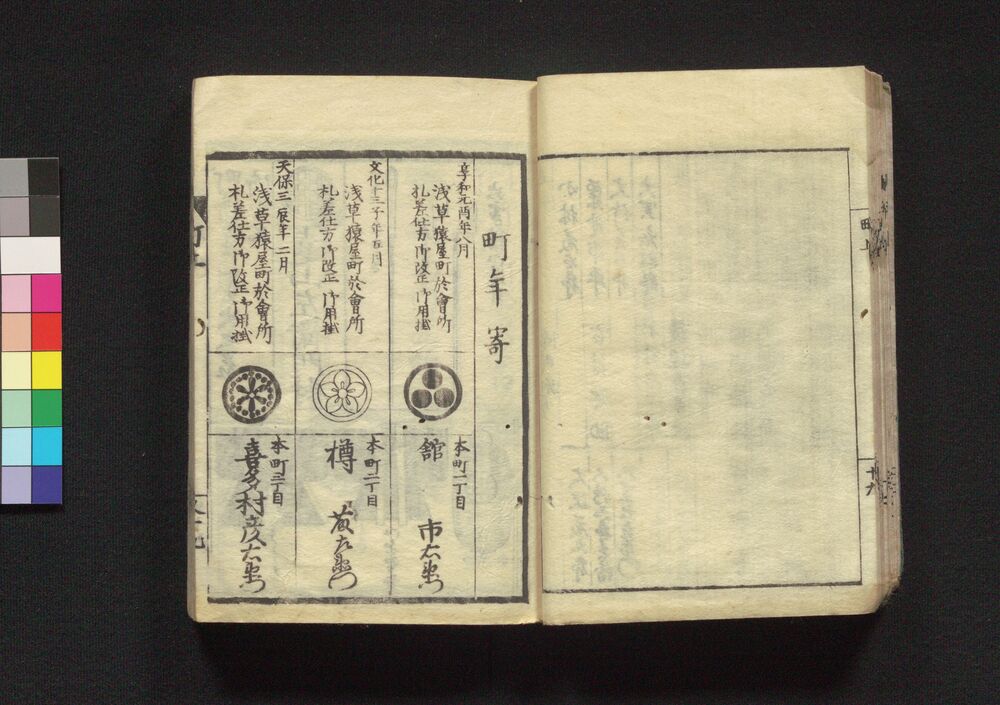 町年寄
享和元酉年八月
浅草猿屋町於會所
札差仕方御改正御用掛
本町一丁目
舘
市右衛門
文化十三子年五月
浅草猿屋町於會所
札差仕方御改正御用掛
本町二丁目
樽
藤左衛門
天保三辰年二月
浅草猿屋町於會所
札差仕方御改正御用掛
本町三丁目
喜多村彦右衛門
十六